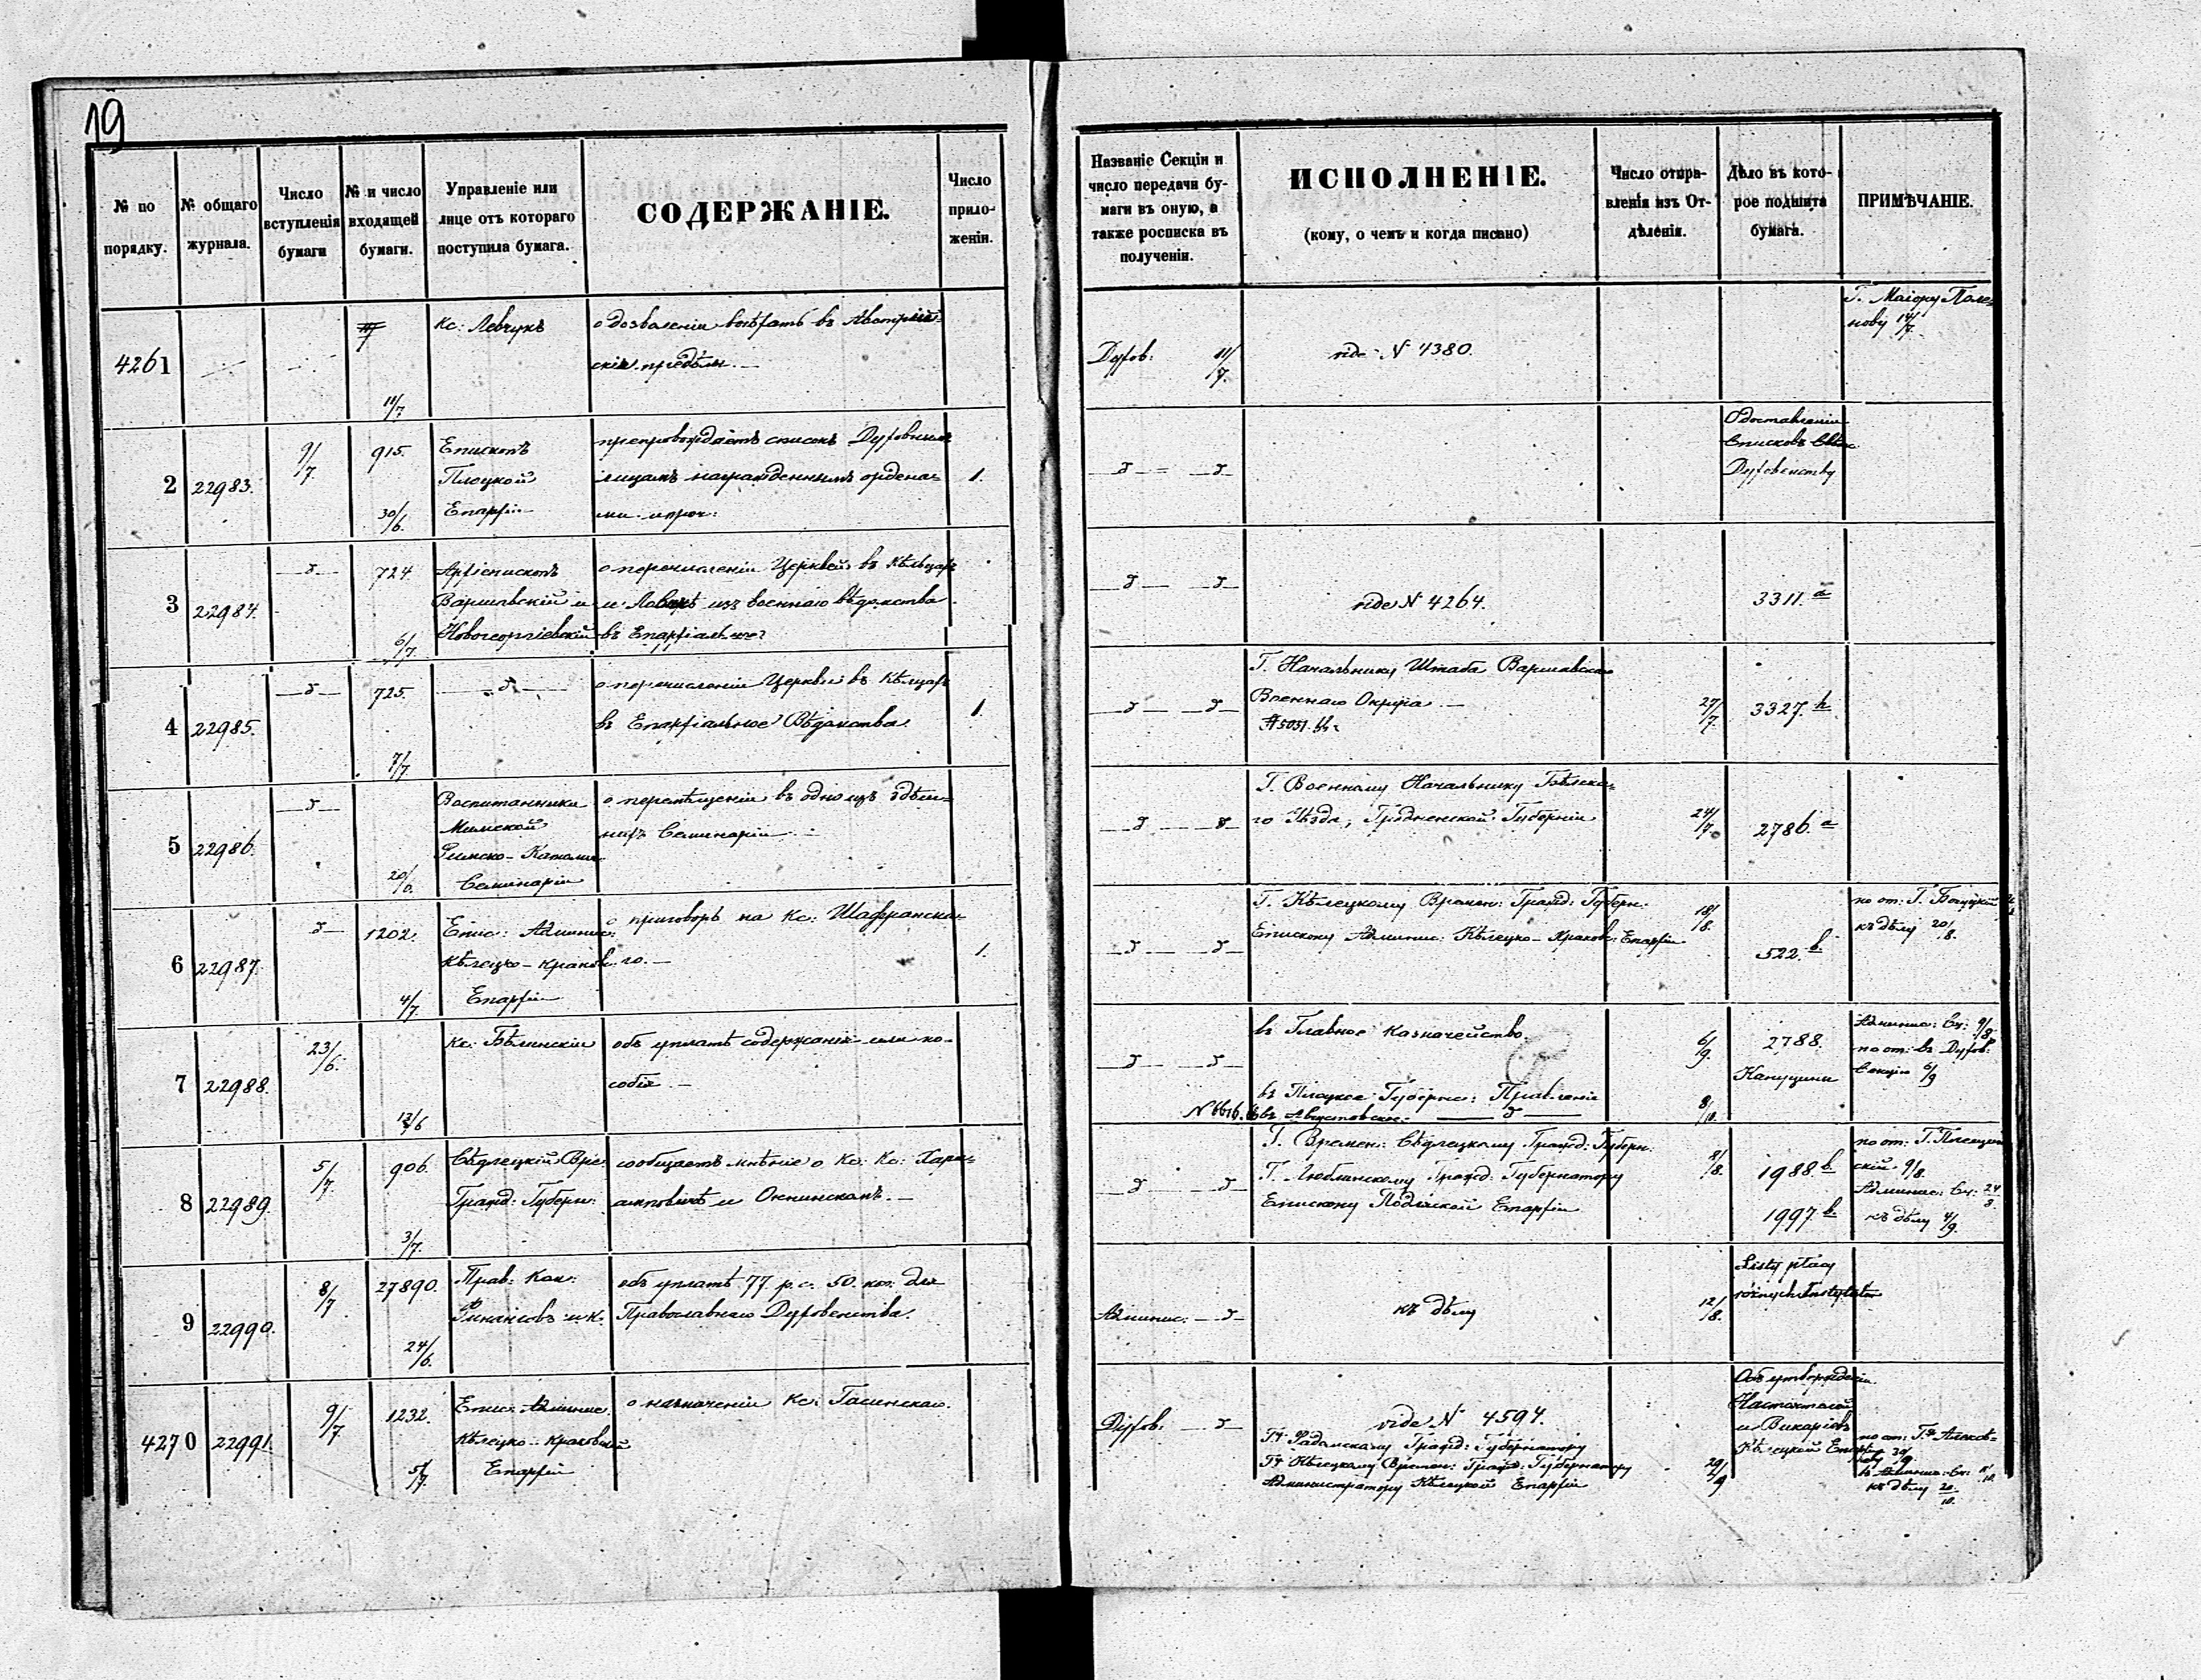 19
№ по порядку.
№ общаго журнала.
Число вступленія бумаги
№ и число входящей бумаги.
Управленіе или лице отъ котораго поступила бумага.
СОДЕРЖАНІЕ.
Число приложеніи.
Названіе Секціи и число передачи бумаги въ оную, а также росписка въ полученіи.
ИСПОЛНЕНІЕ.
(кому, о чемъ и когда писано)
Число отправленія изъ Отдѣленія.
Дѣло въ которое подшита бумага.
ПРИМѢЧАНІЕ.
4261
11/7
Кс: Левчукъ
о дозволеніи выѣхать въ Австрій-
скіе предѣлы. —
Духов: 11/7.
vide N 4380.
Г. Маіору Поле-
нову 14/7.
2
22983.
9/7.
915.
30/6.
Епископъ
Плоцкой
Епархіи
препровождаетъ списокъ Духовнымъ
лицамъ награжденнымъ ордена-
ми и проч:
1.
О доставленіи
Списковъ
Духовенству
3
22984.
724.
6/7.
Архіепископъ
Варшавскій и
Новогеоргіевскій
о перечисленіи Церквей въ Кѣльцахъ
и Ловичѣ изъ военнаго вѣдомства
въ Епархіальное
vide N 4264.
3311. a
4
22985.
725.
7/7.
о перечисленіи Церкви въ Кѣльцахъ
въ Епархіальное Вѣдомство
1.
Г. Начальнику Штаба Варшавскаго
Военнаго Округа —
N 5051.
27/7.
3327. h
5
22986.
20/6.
Воспитанники
Минской
Римско-Католич.
Семинаріи
о перемѣщеніи въ одно изъ здѣш-
нихъ Семинаріи —
Г. Военному Начальнику Бѣльска-
го Уѣзда, Гродненской Губерніи
24/7.
2786. a
6
22987.
1202.
4/7.
Епис: Админис:
Кѣлецко-Краков.
Епархіи
о приговорѣ на Кс: Шафранска-
го. —
1.
Г. Кѣлецкому Времен: Гражд: Губерн:
Епископу Админис: Кѣлецко-Краков: Епархіи
18/8.
522. b.
къ дѣлу 20/8.
7
22988.
23/6.
Кс: Бѣлинскій
объ уплатѣ содержанія или по-
собія —
въ Главное Казначейство.
въ Плоцкое Губернс: Правленіе
N 6616. въ Августовское.
6/9.
8/10.
2788.
Капуцины
Админис: Сц: 9/8.
по от: въ Духов:
Секцію 6/9
8
22989.
5/7.
906.
3/7.
Сѣдлецкій Вре:
Гражд: Губерн:
сообщаетъ мнѣніе о Кс: Кс: Хара-
и Окнинскомъ. —
Г. Времен: Сѣдлецкому Гражд: Губерн:
Г. Люблинскому Гражд: Губернатору
Епископу Подляской Епархіи
8/8.
1988. b.
1997. b.
скій 9/8.
Админис: Сц: 24/8.
къ дѣлу 4/9.
9
22990.
8/7.
27890.
24/6.
Прав: Ком:
Финансовъ и К.
объ уплатѣ 77 р. с. 50. коп: для
Православнаго Духовенства.
Админис.
къ дѣлу
12/8.
Listy płacy
różnych Instytutów
4270
22991.
9/7.
1232.
5/7.
Епис: Админис.
Кѣлецко-Краковской
Епархіи
о назначеніи Кс: Гасинскаго.
Духов:
vide N 4594.
Гч Радомскому Гражд: Губернатору
Гч Кѣлецкому Времен: Гражд: Губернатору
Администратору Кѣлецкой Епархіи
29/9
Объ утвержденіи
Настоятелей
и Викаріевъ
Кѣлецкой Епархіи
къ дѣлу 20/10.